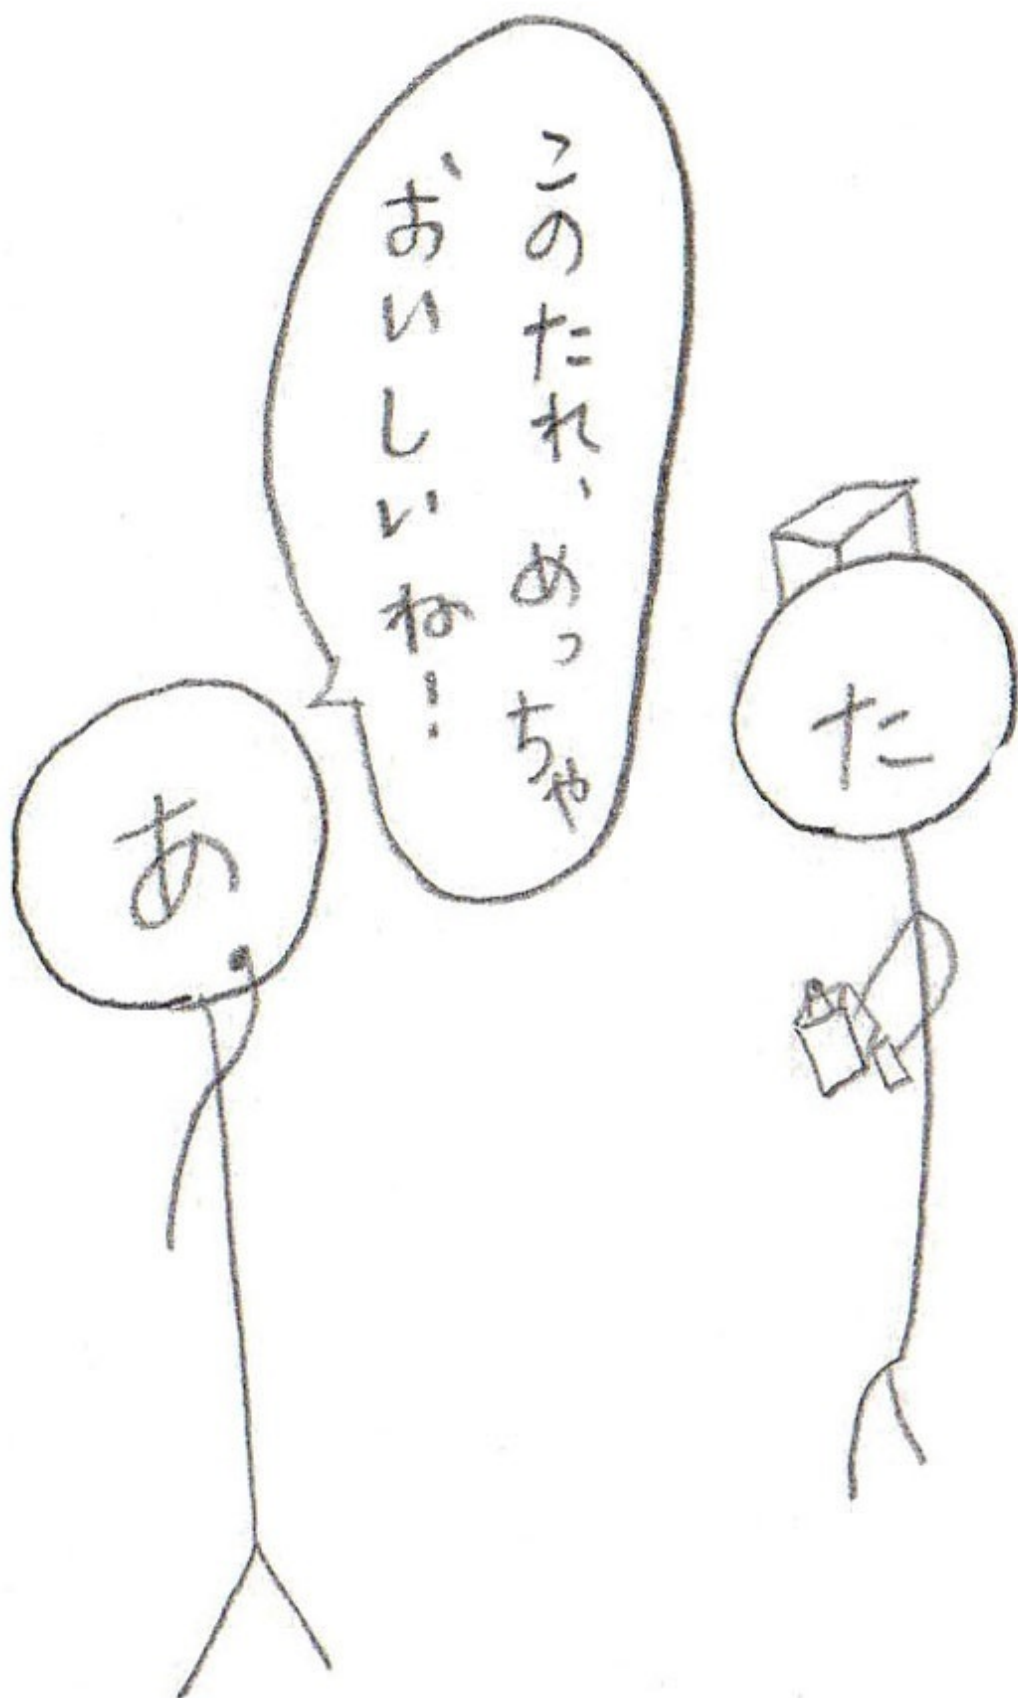 このたれ、めっちゃ
おいしいね!
た
あ